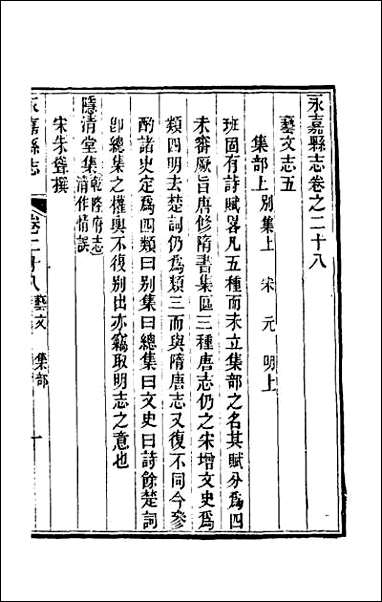 永嘉縣志卷之二十八
藝文志五
集部上 別集上 宋 元 明上
班固有詩賦畧凡五種而未立集部之名其賦分爲四
未審厥旨唐修隋書集區三種唐志仍之宋增文史爲
類四明去楚詞仍爲類三而與隋唐志又復不同今參
酌諸史定爲四類曰別集曰總集曰文史曰詩餘楚詞
卽總集之權輿不復別出亦竊取明志之意也
隱清堂集 乾隆府志清作情誤
宋朱聳撰
永嘉縣志 卷二十八 藝文 集部 一